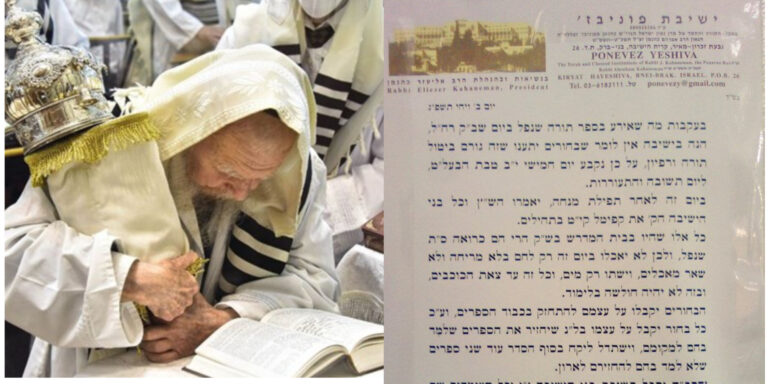 ישיבת פוניבז'
PONEVEZ YESHIVA
KIRYAT HAYESHIVA, BNEI-BRAK, ISRAEL P.O.B.
Rabbi Eliezer Kahaneman, President
Tel. 03-6182111 .טל ponevezy@gmail.com
בס"ד
יום ב' ויחי תשפ"ג
בעקבות מה שאירע בספר תורה שנפל ביום שב"ק רח"ל,
הנה בישיבה אין לומר שבחורים יתענו שזה גורם ביטול
תורה ורפיון, על כן נקבע יום חמישי י"ב טבת הבעל"ט,
ליום תשובה והתעוררות.
ביום זה לאחר תפילת מנחה, יאמרו הש"ץ וכל בני
הישיבה הק' את קפיטל קי"ט בתהילים.
כל אלו שהיו בבית המדרש בש"ק הרי הם כרואה ס"ת
שנפל, ולכן לא יאכלו ביום זה רק לחם בלא מריחה ולא
שאר מאכלים, וישתו רק מים, וכל זה עד צאת הכוכבים,
ובזה לא יהיה חולשה בלימוד.
הבחורים יקבלו על עצמם להתחזק בכבוד הספרים, וע"כ
כל בחור יקבל על עצמו בל"נ שיחזיר את הספרים שלמד
בהם למקומם, וישתדל ליקח בסוף הסדר עוד שני ספרים
שלא למד בהם להחזירם לארון.